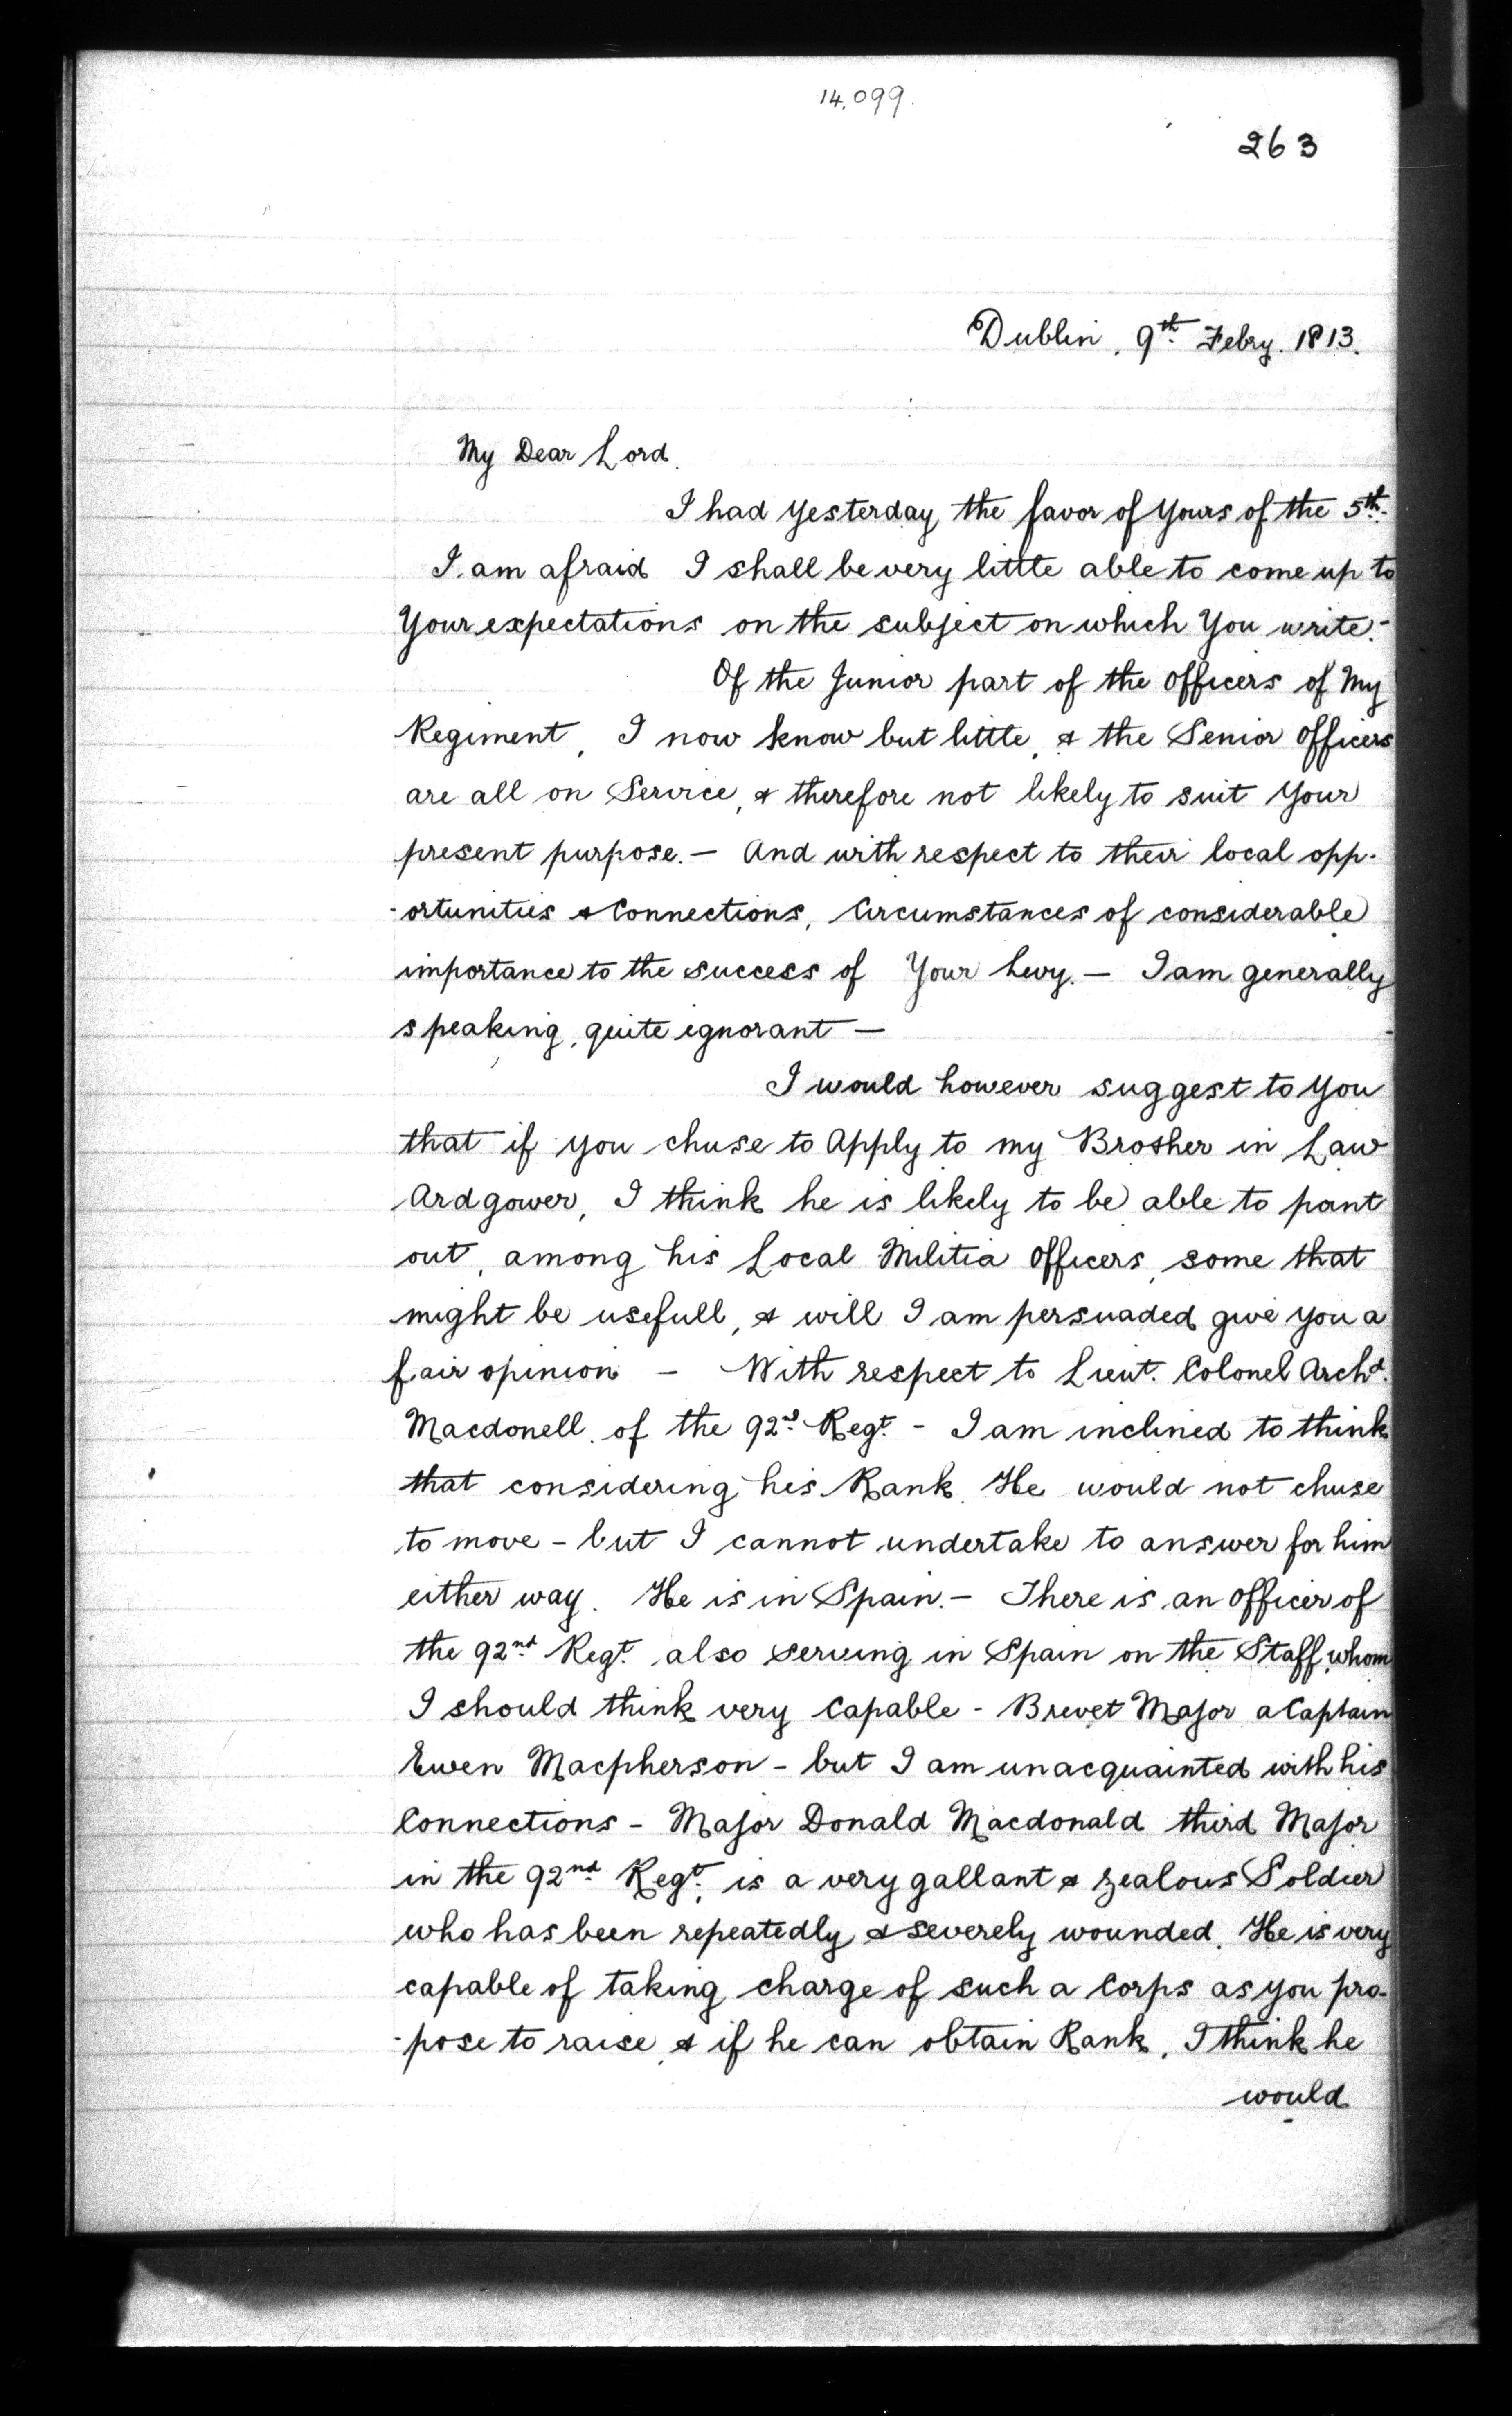 14.099.
263
Dublin, 9th Febry. 1813.
My Dear Lord.
I had yesterday the favor of yours of the 5th.
I am afraid I shall be very little able to come up to
Your expectations on the subject on which You write.-
Of the Junior part of the officers of My
Regiment, I now know but little, & the Senior officers
are all on Service, & therefore not likely to suit Your
present purpose.— And with respect to their local opp-
-ortunities & Connections, Circumstances of considerable
importance to the success of Your levy.— I am generally
speaking, quite ignorant —
I would however suggest to you
that if you chuse to Apply to my Brother in Law
Ardgower, I think he is likely to be able to point
out, among his Local Militia Officers, some that
might be usefull, & will I am persuaded give you a
fair opinion — With respect to Lieut. Colonel Archd.
Macdonell, of the 92nd Regt. - I am inclined to think
that considering his Rank, He would not chuse
to move - but I cannot undertake to answer for him
either way. He is in Spain.— There is an officer of
the 92nd Regt. also serving in Spain on the Staff, whom
I should think very Capable - Brevet Major a Captain
Ewen Macpherson - but I am unacquainted with his
Connections - Major Donald Macdonald third Major
in the 92nd Regt. is a very gallant & zealous Soldier
who has been repeatedly & severely wounded. He is very
capable of taking charge of such a Corps as you pro-
-pose to raise, & if he can obtain Rank, I think he
would